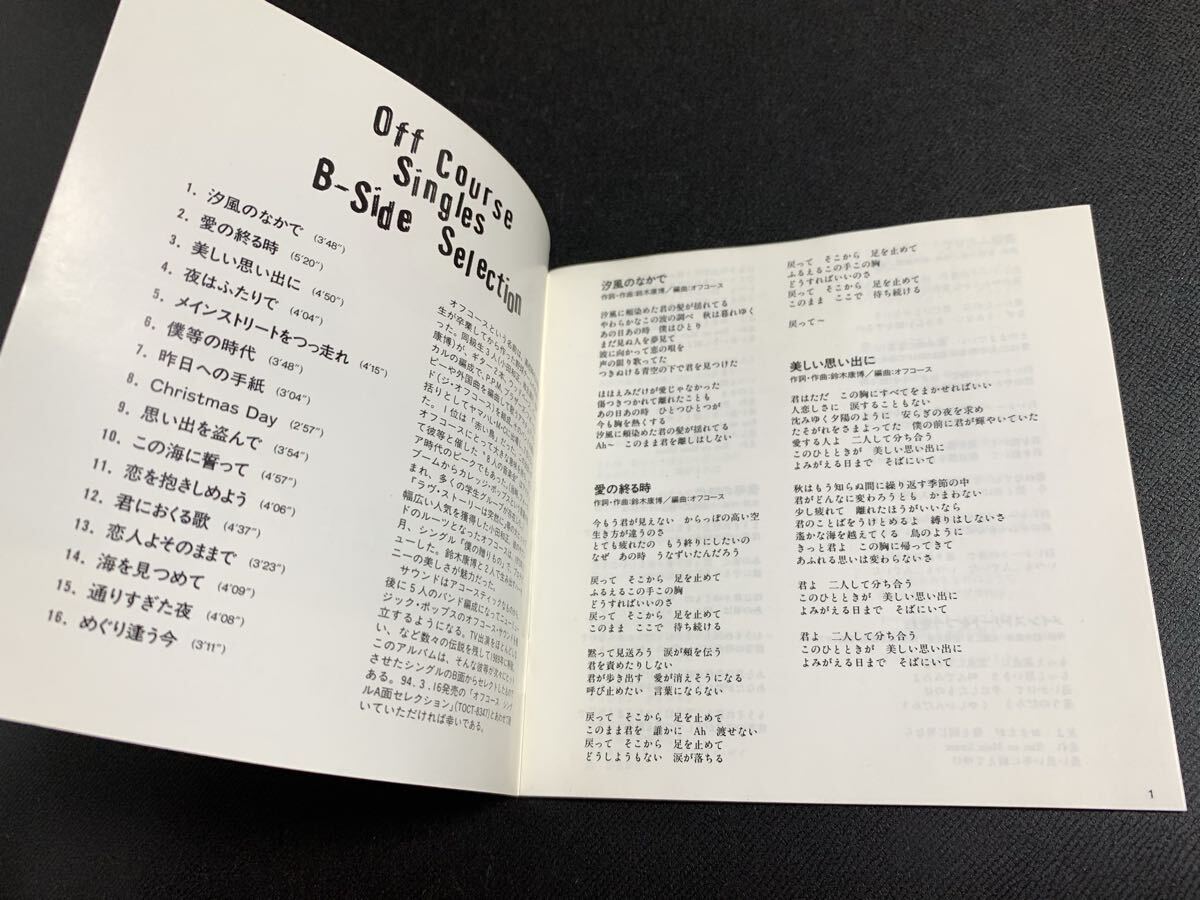 Off Course
Singles
B-Side Selection
1. 汐風のなかで (3'48")
2. 愛の終る時 (5'20")
3. 美しい思い出に (4'50")
4. 夜はふたりで (4'04")
5. メインストリートをつっ走れ (4'15")
6. 僕等の時代 (3'48")
7. 昨日への手紙 (3'04")
8. Christmas Day (2'57")
9. 思い出を盗んで (3'54")
10. この海に誓って (4'57")
11. 恋を抱きしめよう (4'06")
12. 君におくる歌 (4'37")
13. 恋人よそのままで (3'23")
14. 海を見つめて (4'09")
15. 通りすぎた夜 (4'08")
16. めぐり逢う今 (3'11")
オフコースという名前は、
生が卒業してから作った
った。同級生3人(小田
康博)が、ギター2本、ウッド
カルの編成で、P.P.M.、ブラザース
ピーや外国曲を編曲して歌
ド(ジ・オフコース)を結成。
括りとしてヤマハL・M・Cに出
た。1位は「赤い鳥」だった
オフコースにとって大きな意味を
て彼等と催した"8人の音楽会"は
ア時代のピークでもあった。
ブームからカレッジ・ポップスと
まれ、多くの学生グループが
「ラヴ・ストーリーは突然に」等の
幅広い人気を獲得した小田和正
ドのルーツとなったオフコースは、
月、シングル「僕の贈りもの」で、
ューした。鈴木康博と2人で生み出す
ニーの美しさが魅力だった。
サウンドはアコースティックなものから
後に5人のバンド編成になって
ジック・ポップスのオフコース・サウンドを
立するようになる。TV出演をほとんどしな
い、など数々の伝説を残して1989年に解散。
このアルバムは、そんな彼等が次々にヒット
させたシングルのB面からセレクトしたもので
ある。94.3.16発売の「オフコース シング
ルA面セレクション」(TOCT-8347)とあわせて聴
いていただければ幸いである。
汐風のなかで
作詞・作曲:鈴木康博/編曲:オフコース
汐風に頬染めた君の髪が揺れてる
やわらかなこの波の調べ 秋は暮れゆく
あの日あの時 僕はひとり
まだ見ぬ人を夢見て
波に向かって恋の唄を
声の限り歌ってた
つきぬける青空の下で君を見つけた
ほほえみだけが愛じゃなかった
傷つきつかれて離れたことも
あの日あの時 ひとつひとつが
今も胸を熱くする
汐風に頬染めた君の髪が揺れてる
Ah〜 このまま君を離しはしない
愛の終る時
作詞・作曲:鈴木康博/編曲:オフコース
今もう君が見えない からっぽの高い空
生き方が違うのさ
とても疲れたの もう終りにしたいの
なぜ あの時 うなずいたんだろう
戻って そこから 足を止めて
ふるえるこの手この胸
どうすればいいのさ
戻って そこから 足を止めて
このまま ここで 待ち続ける
黙って見送ろう 涙が頬を伝う
君を責めたりしない
君が歩き出す 愛が消えそうになる
呼び止めたい 言葉にならない
戻って そこから 足を止めて
このまま君を 誰かに Ah 渡せない
戻って そこから 足を止めて
どうしようもない 涙が落ちる
戻って そこから 足を止めて
ふるえるこの手この胸
どうすればいいのさ
戻って そこから 足を止めて
このまま ここで 待ち続ける
戻って〜
美しい思い出に
作詞・作曲:鈴木康博/編曲:オフコース
君はただ この胸にすべてをまかせればいい
人恋しさに 涙することもない
沈みゆく夕陽のように 安らぎの夜を求め
たそがれをさまよってた 僕の前に君が輝やいていた
愛する人よ 二人して分ち合う
このひとときが 美しい思い出に
よみがえる日まで そばにいて
秋はもう知らぬ間に繰り返す季節の中
君がどんなに変わろうとも かまわない
少し疲れて 離れたほうがいいなら
君のことばをうけとめるよ 縛りはしないさ
遙かな海を越えてくる 鳥のように
きっと君よ この胸に帰ってきて
あふれる思いは変わらないさ
君よ 二人して分ち合う
このひとときが 美しい思い出に
よみがえる日まで そばにいて
君よ 二人して分ち合う
このひとときが 美しい思い出に
よみがえる日まで そばにいて
1